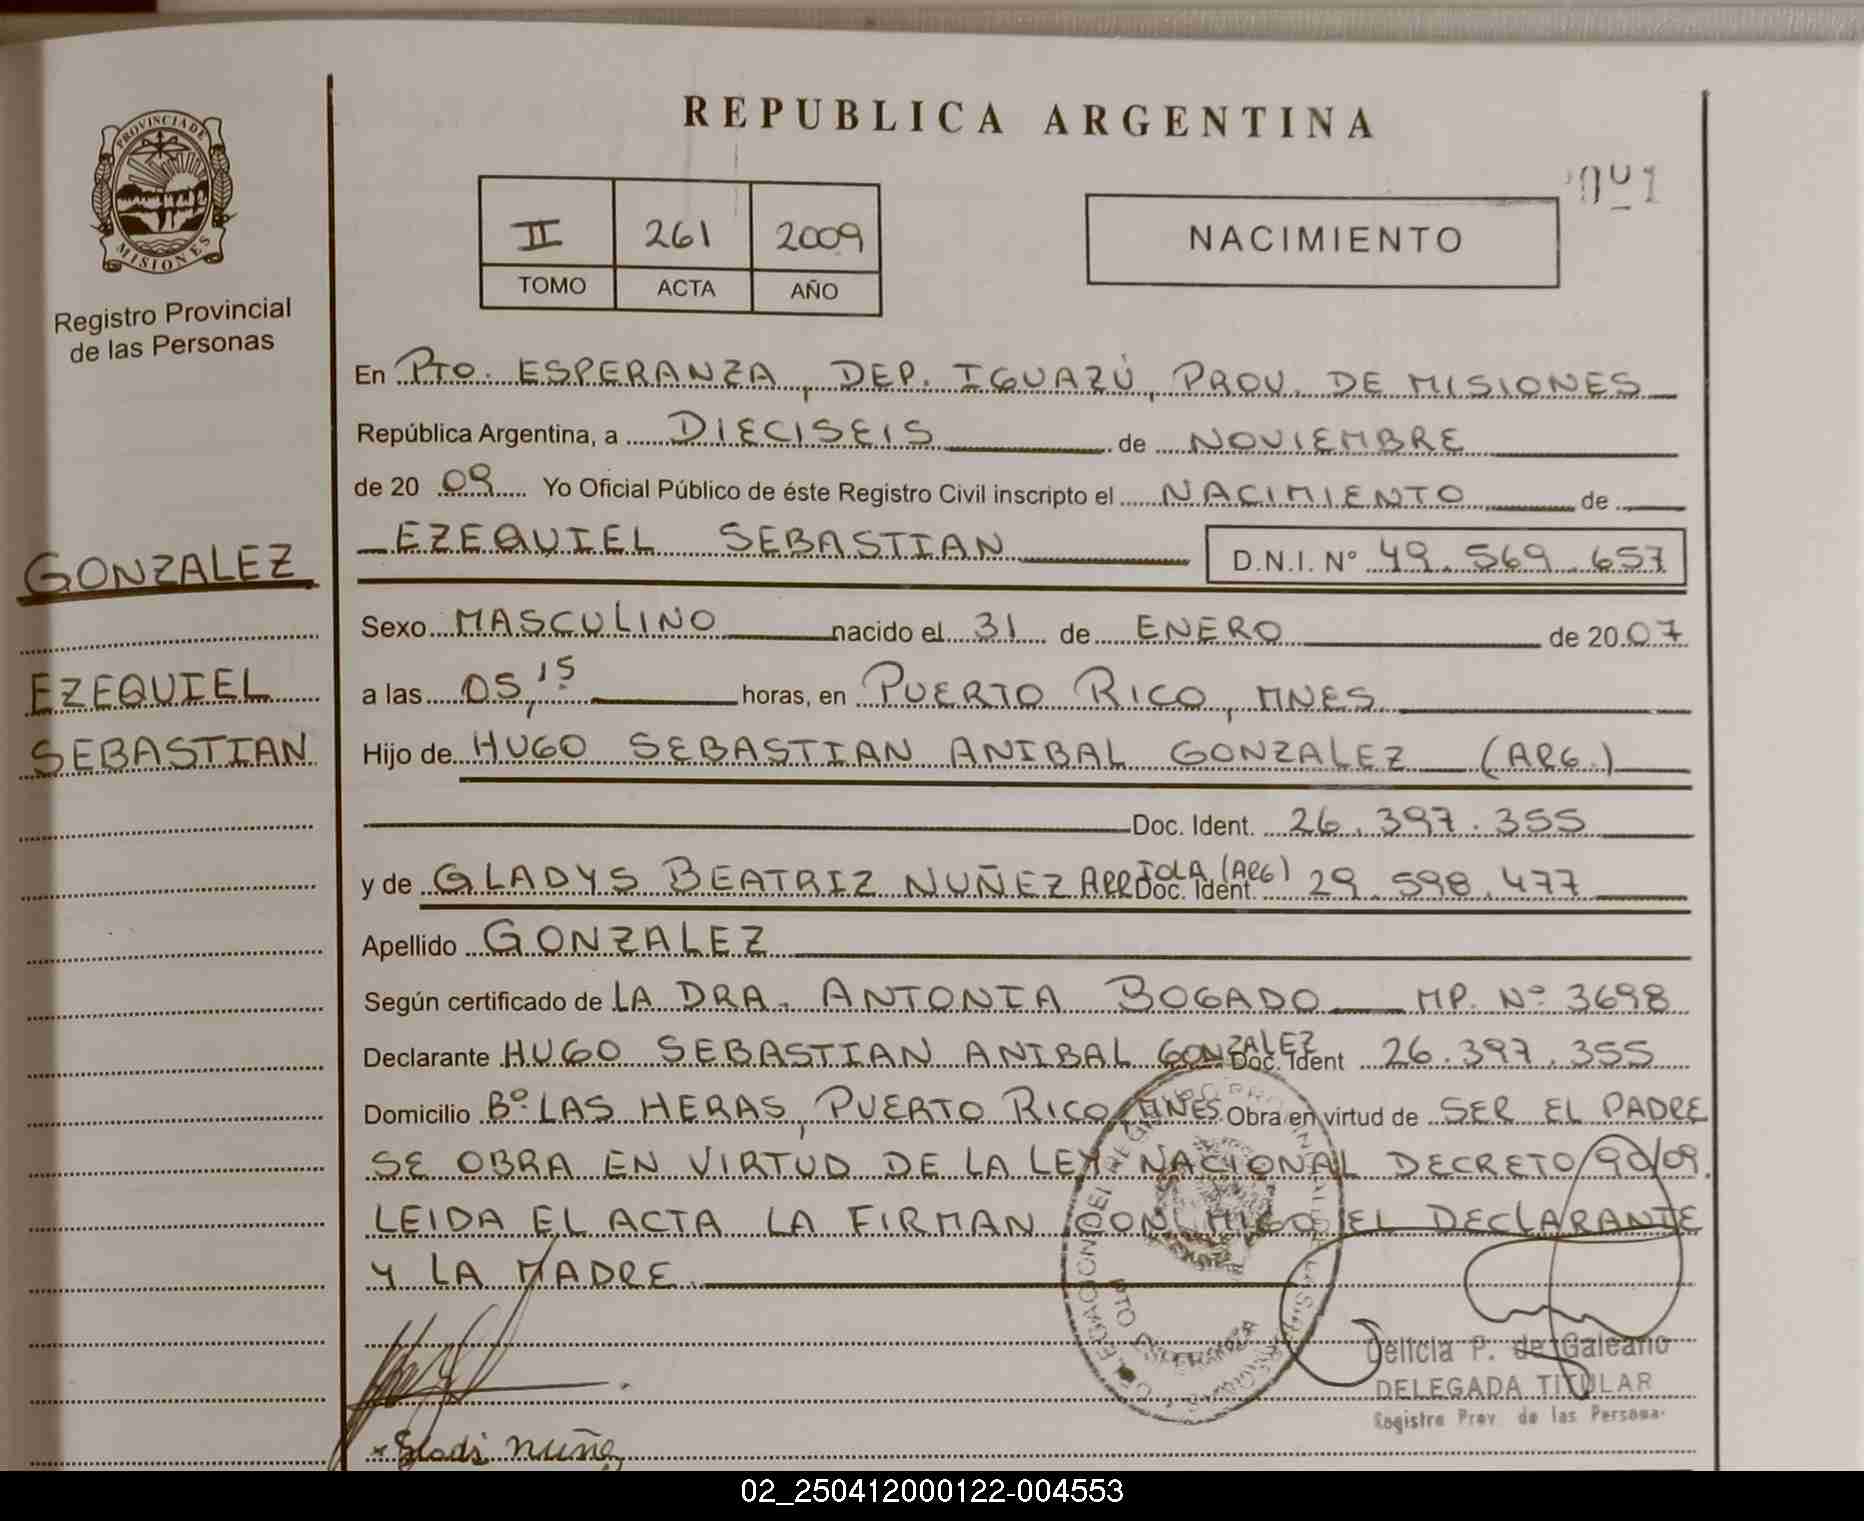 REPUBLICA ARGENTINA
PROVINCIA DE
MISIONES
Registro Provincial
de las Personas
II 261 2009
TOMO ACTA AÑO
NACIMIENTO
En PTO. ESPERANZA, DEP. IGUAZÚ, PROV. DE MISIONES
República Argentina, a DIECISEIS de NOVIEMBRE
de 20 09 Yo Oficial Público de éste Registro Civil inscripto el NACIMIENTO de
EZEQUIEL SEBASTIAN D.N.I. Nº 49.569.657
GONZALEZ
EZEQUIEL
SEBASTIAN
Sexo MASCULINO nacido el 31 de ENERO de 20 07
a las 05,15 horas, en PUERTO RICO, MNES.
Hijo de HUGO SEBASTIAN ANIBAL GONZALEZ (ARG.)
Doc. Ident. 26.397.355
y de GLADYS BEATRIZ NUÑEZ ARRIOLA (ARG) Doc. Ident. 29.598.477
Apellido GONZALEZ
Según certificado de LA DRA. ANTONIA BOGADO MP. Nº 3698
Declarante HUGO SEBASTIAN ANIBAL GONZALEZ Doc. Ident 26.397.355
Domicilio Bº LAS HERAS, PUERTO RICO MNES. Obra en virtud de SER EL PADRE
SE OBRA EN VIRTUD DE LA LEY NACIONAL DECRETO 90/09.
LEIDA EL ACTA LA FIRMAN CON MIGO EL DECLARANTE
Y LA MADRE.
Delicia P. de Galeano
DELEGADA TITULAR
Registro Prov. de las Personas
Gladi Nuñe
02_250412000122-004553